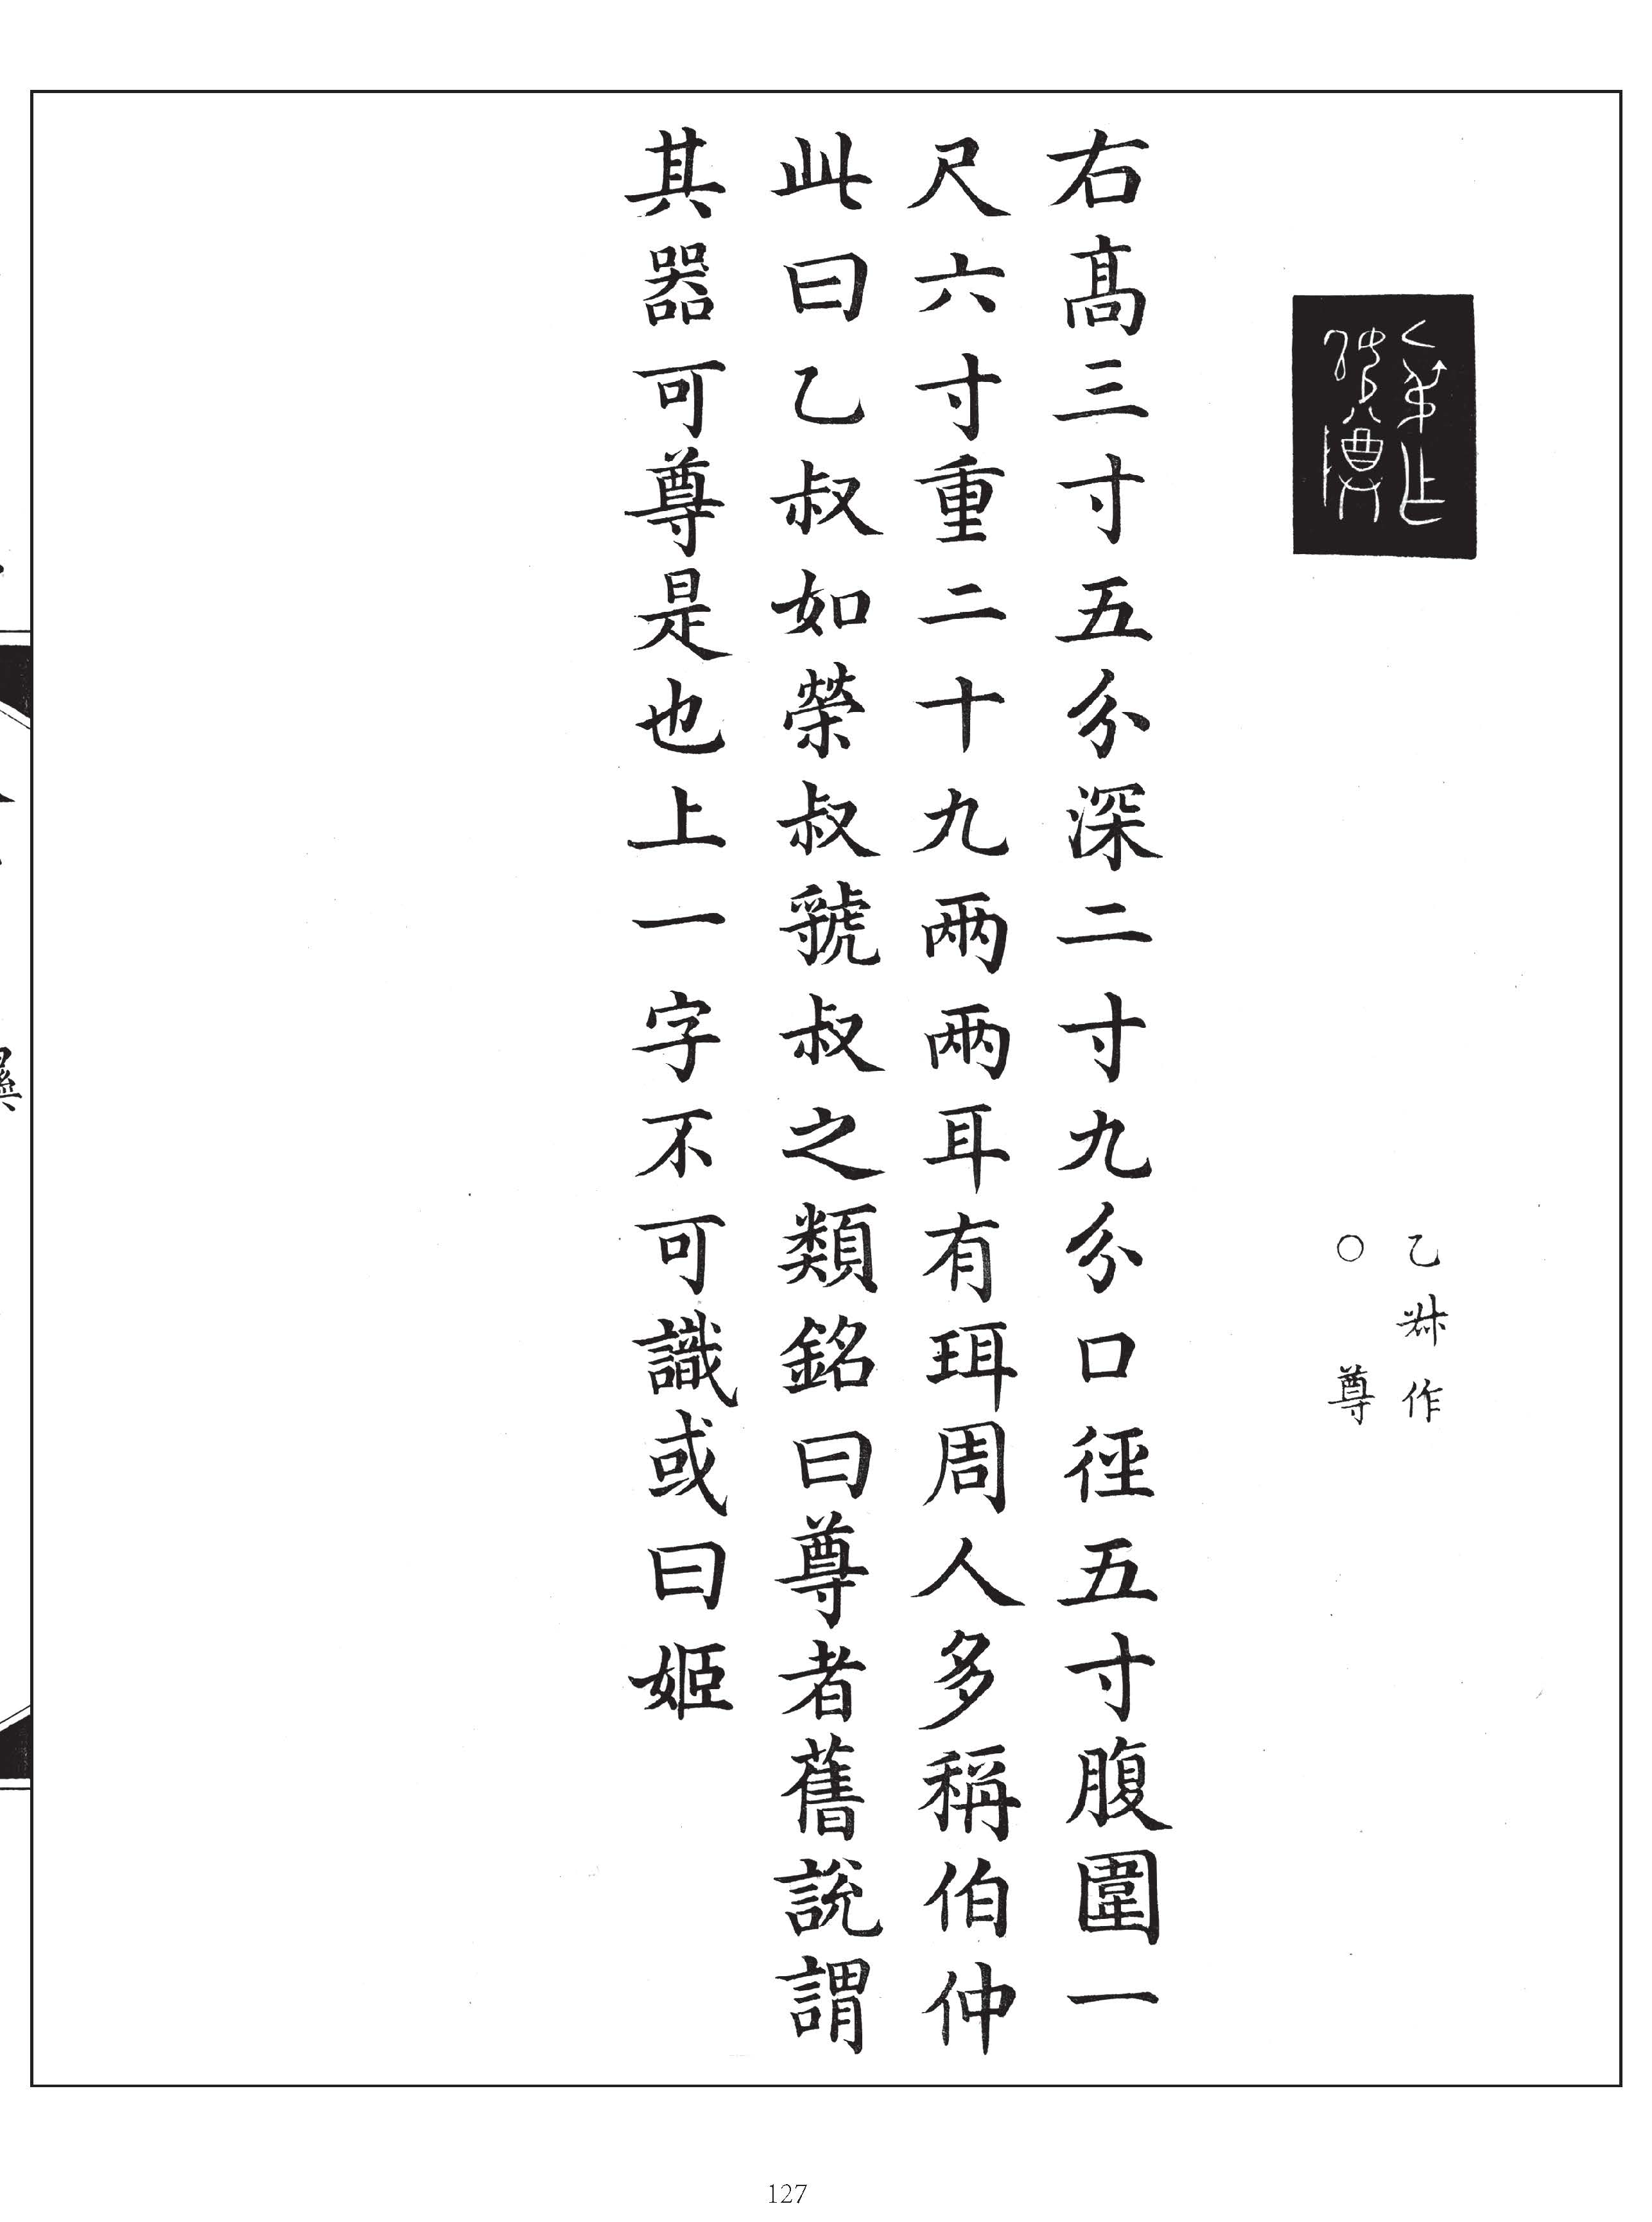 乙尗作
○尊
右高三寸五分深二寸九分口徑五寸腹圍一
尺六寸重二十九兩兩耳有珥周人多稱伯仲
此曰乙叔如榮叔虢叔之類銘曰尊者舊說謂
其器可尊是也上一字不可識或曰姬
127